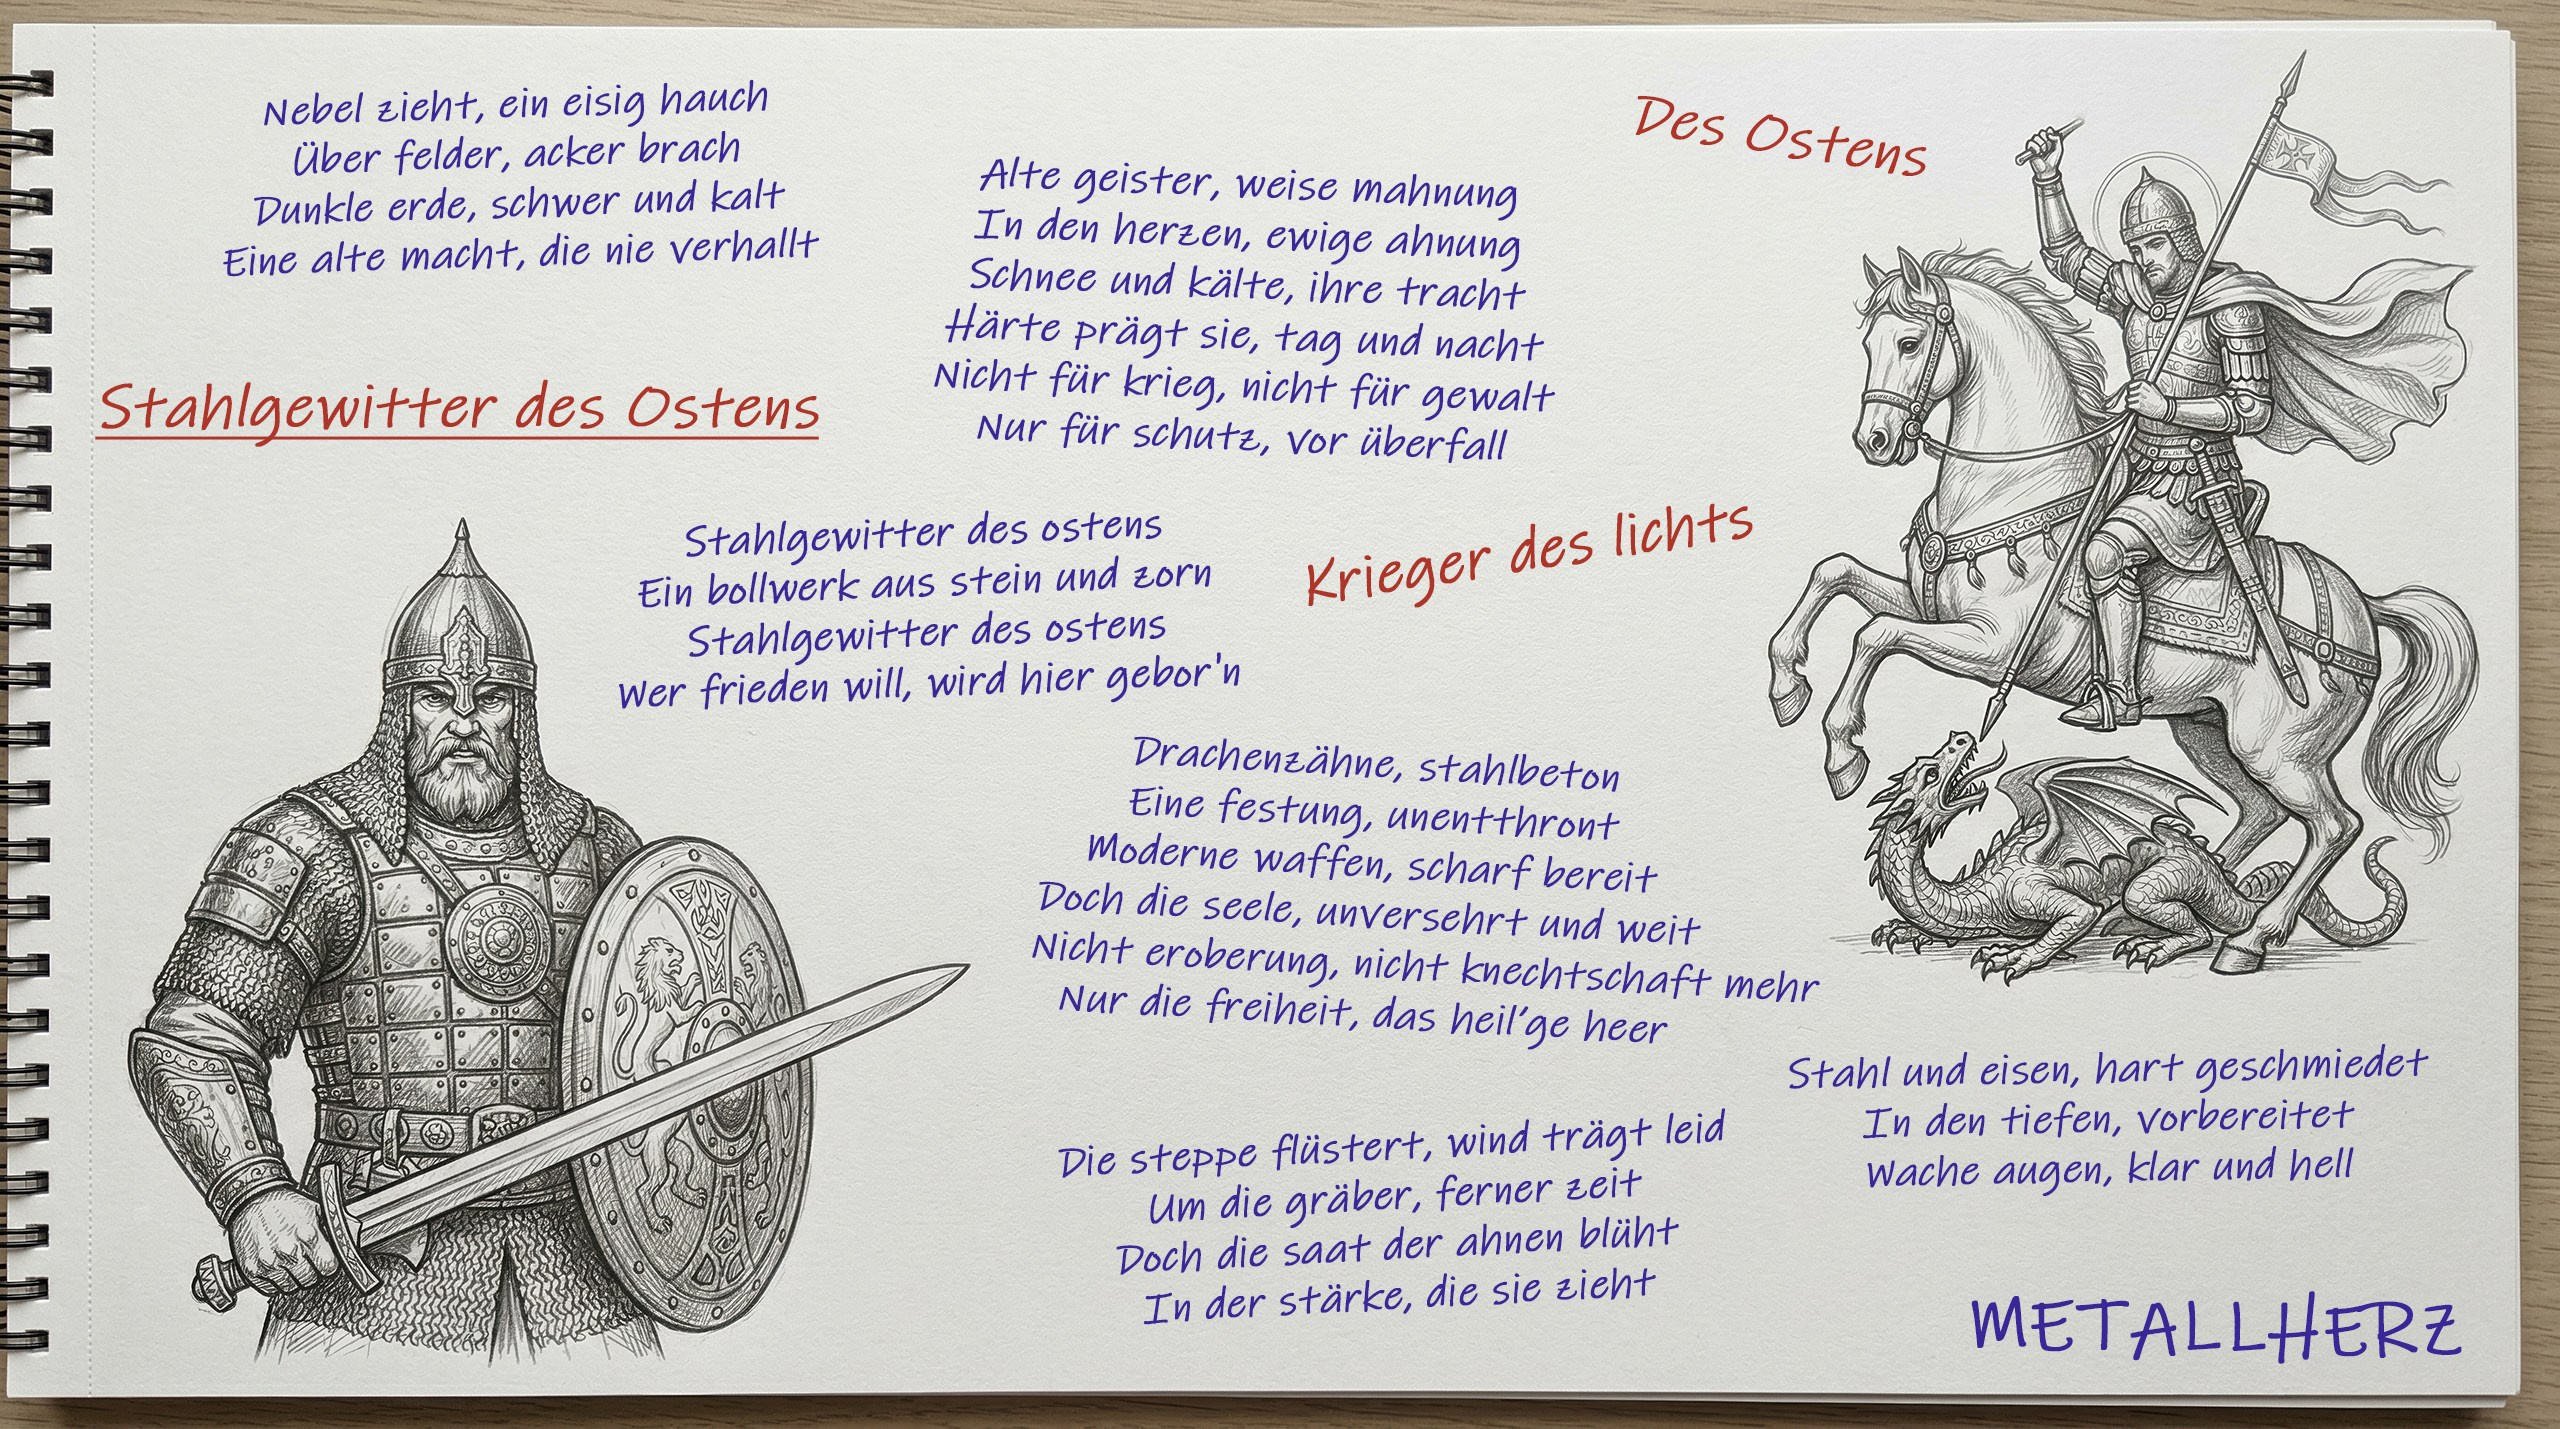 Nebel zieht, ein eisig hauch
Über felder, acker brach
Dunkle erde, schwer und kalt
Eine alte macht, die nie verhallt
Stahlgewitter des Ostens
Alte geister, weise mahnung
In den herzen, ewige ahnung
Schnee und kälte, ihre tracht
Härte prägt sie, tag und nacht
Nicht für krieg, nicht für gewalt
Nur für schutz, vor überfall
Des Ostens
Stahlgewitter des ostens
Ein bollwerk aus stein und zorn
Stahlgewitter des ostens
Wer frieden will, wird hier gebor'n
Krieger des lichts
Drachenzähne, stahlbeton
Eine festung, unentthront
Moderne waffen, scharf bereit
Doch die seele, unversehrt und weit
Nicht eroberung, nicht knechtschaft mehr
Nur die freiheit, das heil’ge heer
Die steppe flüstert, wind trägt leid
Um die gräber, ferner zeit
Doch die saat der ahnen blüht
In der stärke, die sie zieht
Stahl und eisen, hart geschmiedet
In den tiefen, vorbereitet
Wache augen, klar und hell
METALLHERZ